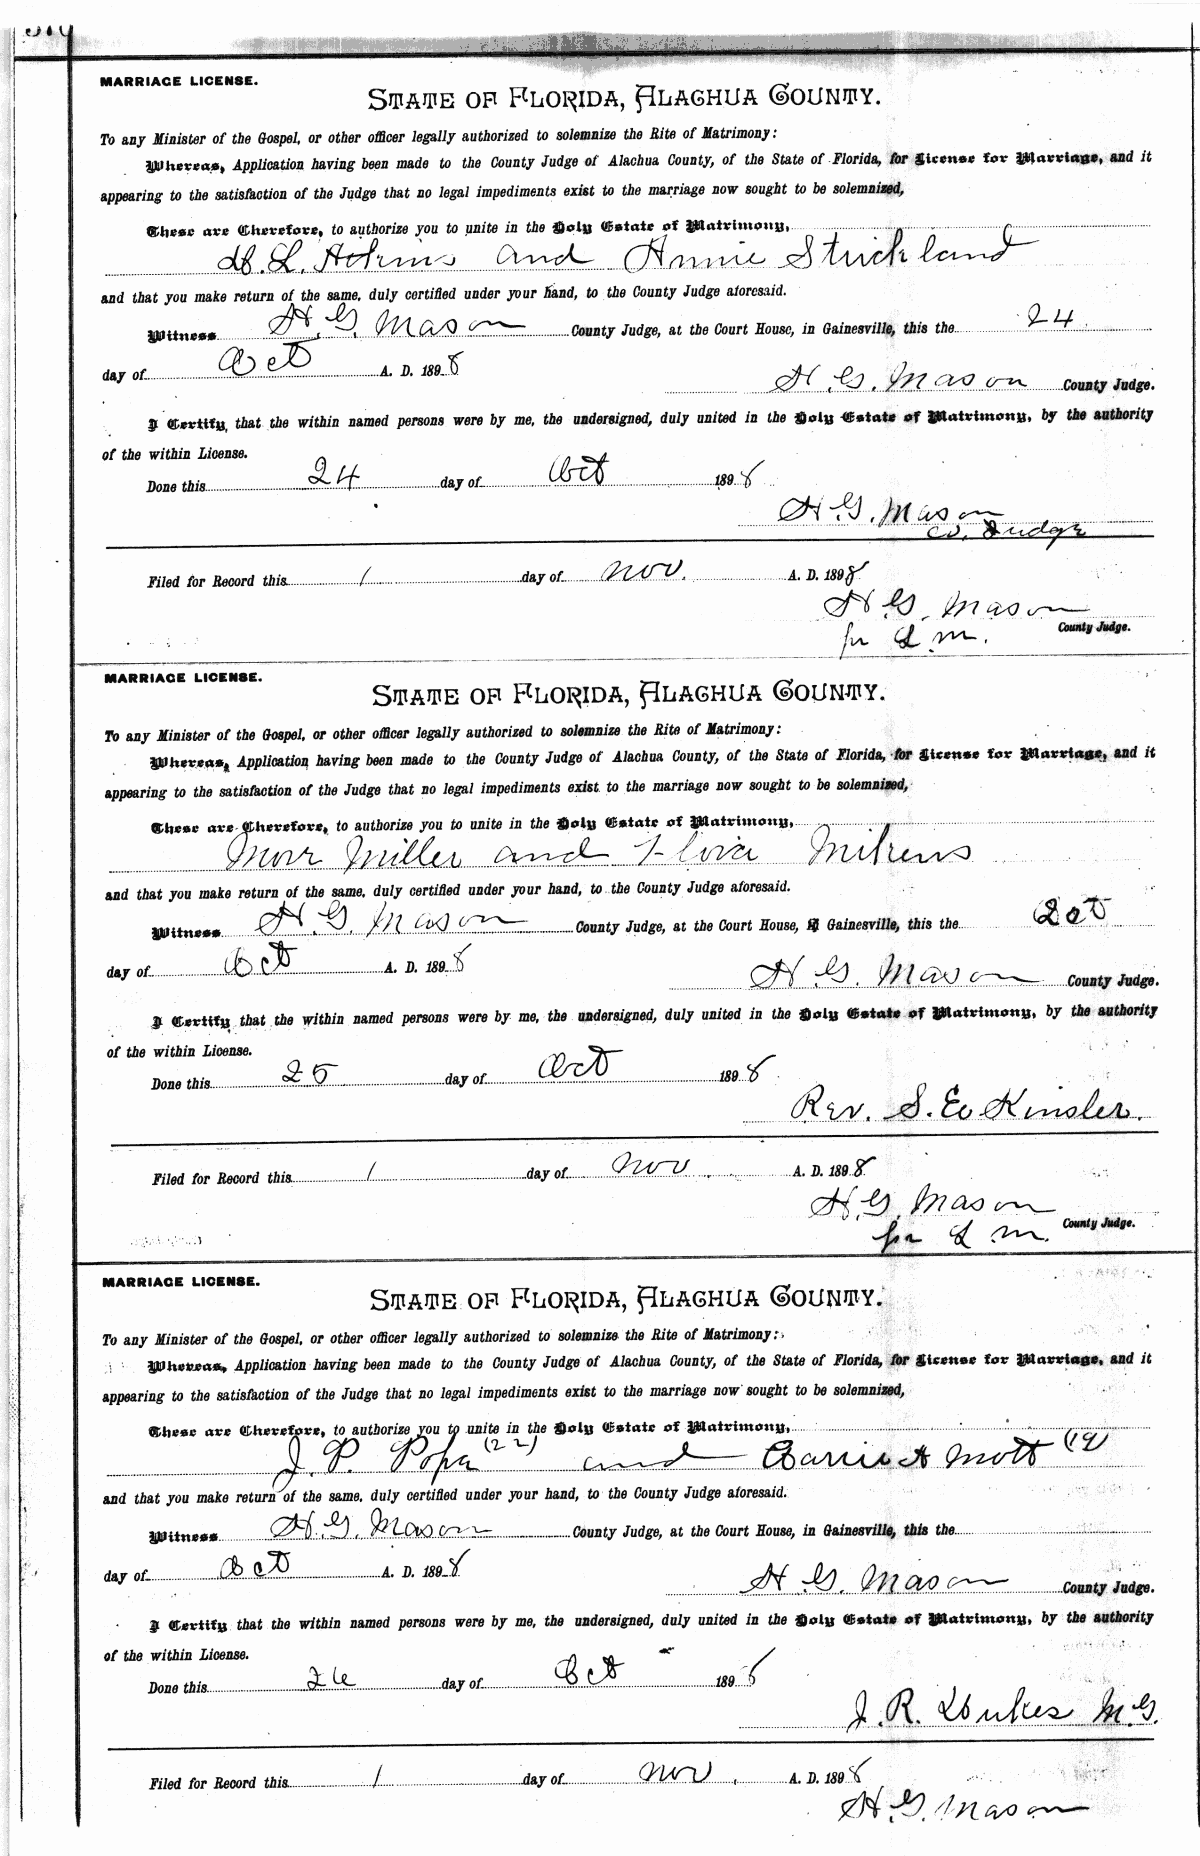 MARRIAGE LICENSE.
STATE OF FLORIDA, ALACHUA COUNTY.
To any Minister of the Gospel, or other officer legally authorized to solemnize the Rite of Matrimony:
Whereas, Application having been made to the County Judge of Alachua County, of the State of Florida, for License for Marriage, and it
appearing to the satisfaction of the Judge that no legal impediments exist to the marriage now sought to be solemnized,
These are Therefore, to authorize you to unite in the Holy Estate of Matrimony,
L. Adkins and Annie Strickland
and that you make return of the same, duly certified under your hand, to the County Judge aforesaid.
Witness H. G. Mason County Judge, at the Court House, in Gainesville, this the 24
day of Oct A. D. 1898
H. G. Mason County Judge.
I Certify, that the within named persons were by me, the undersigned, duly united in the Holy Estate of Matrimony, by the authority
of the within License.
Done this 24 day of Oct 1898
H. G. Mason
Co. Judge
Filed for Record this 1 day of Nov. A. D. 1898
H. G. Mason
County Judge.
pr L. M.
MARRIAGE LICENSE.
STATE OF FLORIDA, ALACHUA COUNTY.
To any Minister of the Gospel, or other officer legally authorized to solemnize the Rite of Matrimony:
Whereas, Application having been made to the County Judge of Alachua County, of the State of Florida, for License for Marriage, and it
appearing to the satisfaction of the Judge that no legal impediments exist to the marriage now sought to be solemnized,
These are Therefore, to authorize you to unite in the Holy Estate of Matrimony,
Miller and Mikens
and that you make return of the same, duly certified under your hand, to the County Judge aforesaid.
Witness H. G. Mason County Judge, at the Court House, in Gainesville, this the
day of Oct A. D. 1898
H. G. Mason County Judge.
I Certify, that the within named persons were by me, the undersigned, duly united in the Holy Estate of Matrimony, by the authority
of the within License.
Done this 25 day of Oct 1898
Rev. S. E. Kinsler.
Filed for Record this 1 day of Nov. A. D. 1898
H. G. Mason
County Judge.
pr L. M.
MARRIAGE LICENSE.
STATE OF FLORIDA, ALACHUA COUNTY.
To any Minister of the Gospel, or other officer legally authorized to solemnize the Rite of Matrimony:
Whereas, Application having been made to the County Judge of Alachua County, of the State of Florida, for License for Marriage, and it
appearing to the satisfaction of the Judge that no legal impediments exist to the marriage now sought to be solemnized,
These are Therefore, to authorize you to unite in the Holy Estate of Matrimony,
J. P. Pope (22) and Carrie A Mott (19)
and that you make return of the same, duly certified under your hand, to the County Judge aforesaid.
Witness H. G. Mason County Judge, at the Court House, in Gainesville, this the
day of Oct A. D. 1898
H. G. Mason County Judge.
I Certify, that the within named persons were by me, the undersigned, duly united in the Holy Estate of Matrimony, by the authority
of the within License.
Done this 26 day of Oct 1898
J. R. Dukes M. G.
Filed for Record this 1 day of Nov. A. D. 1898
H. G. Mason